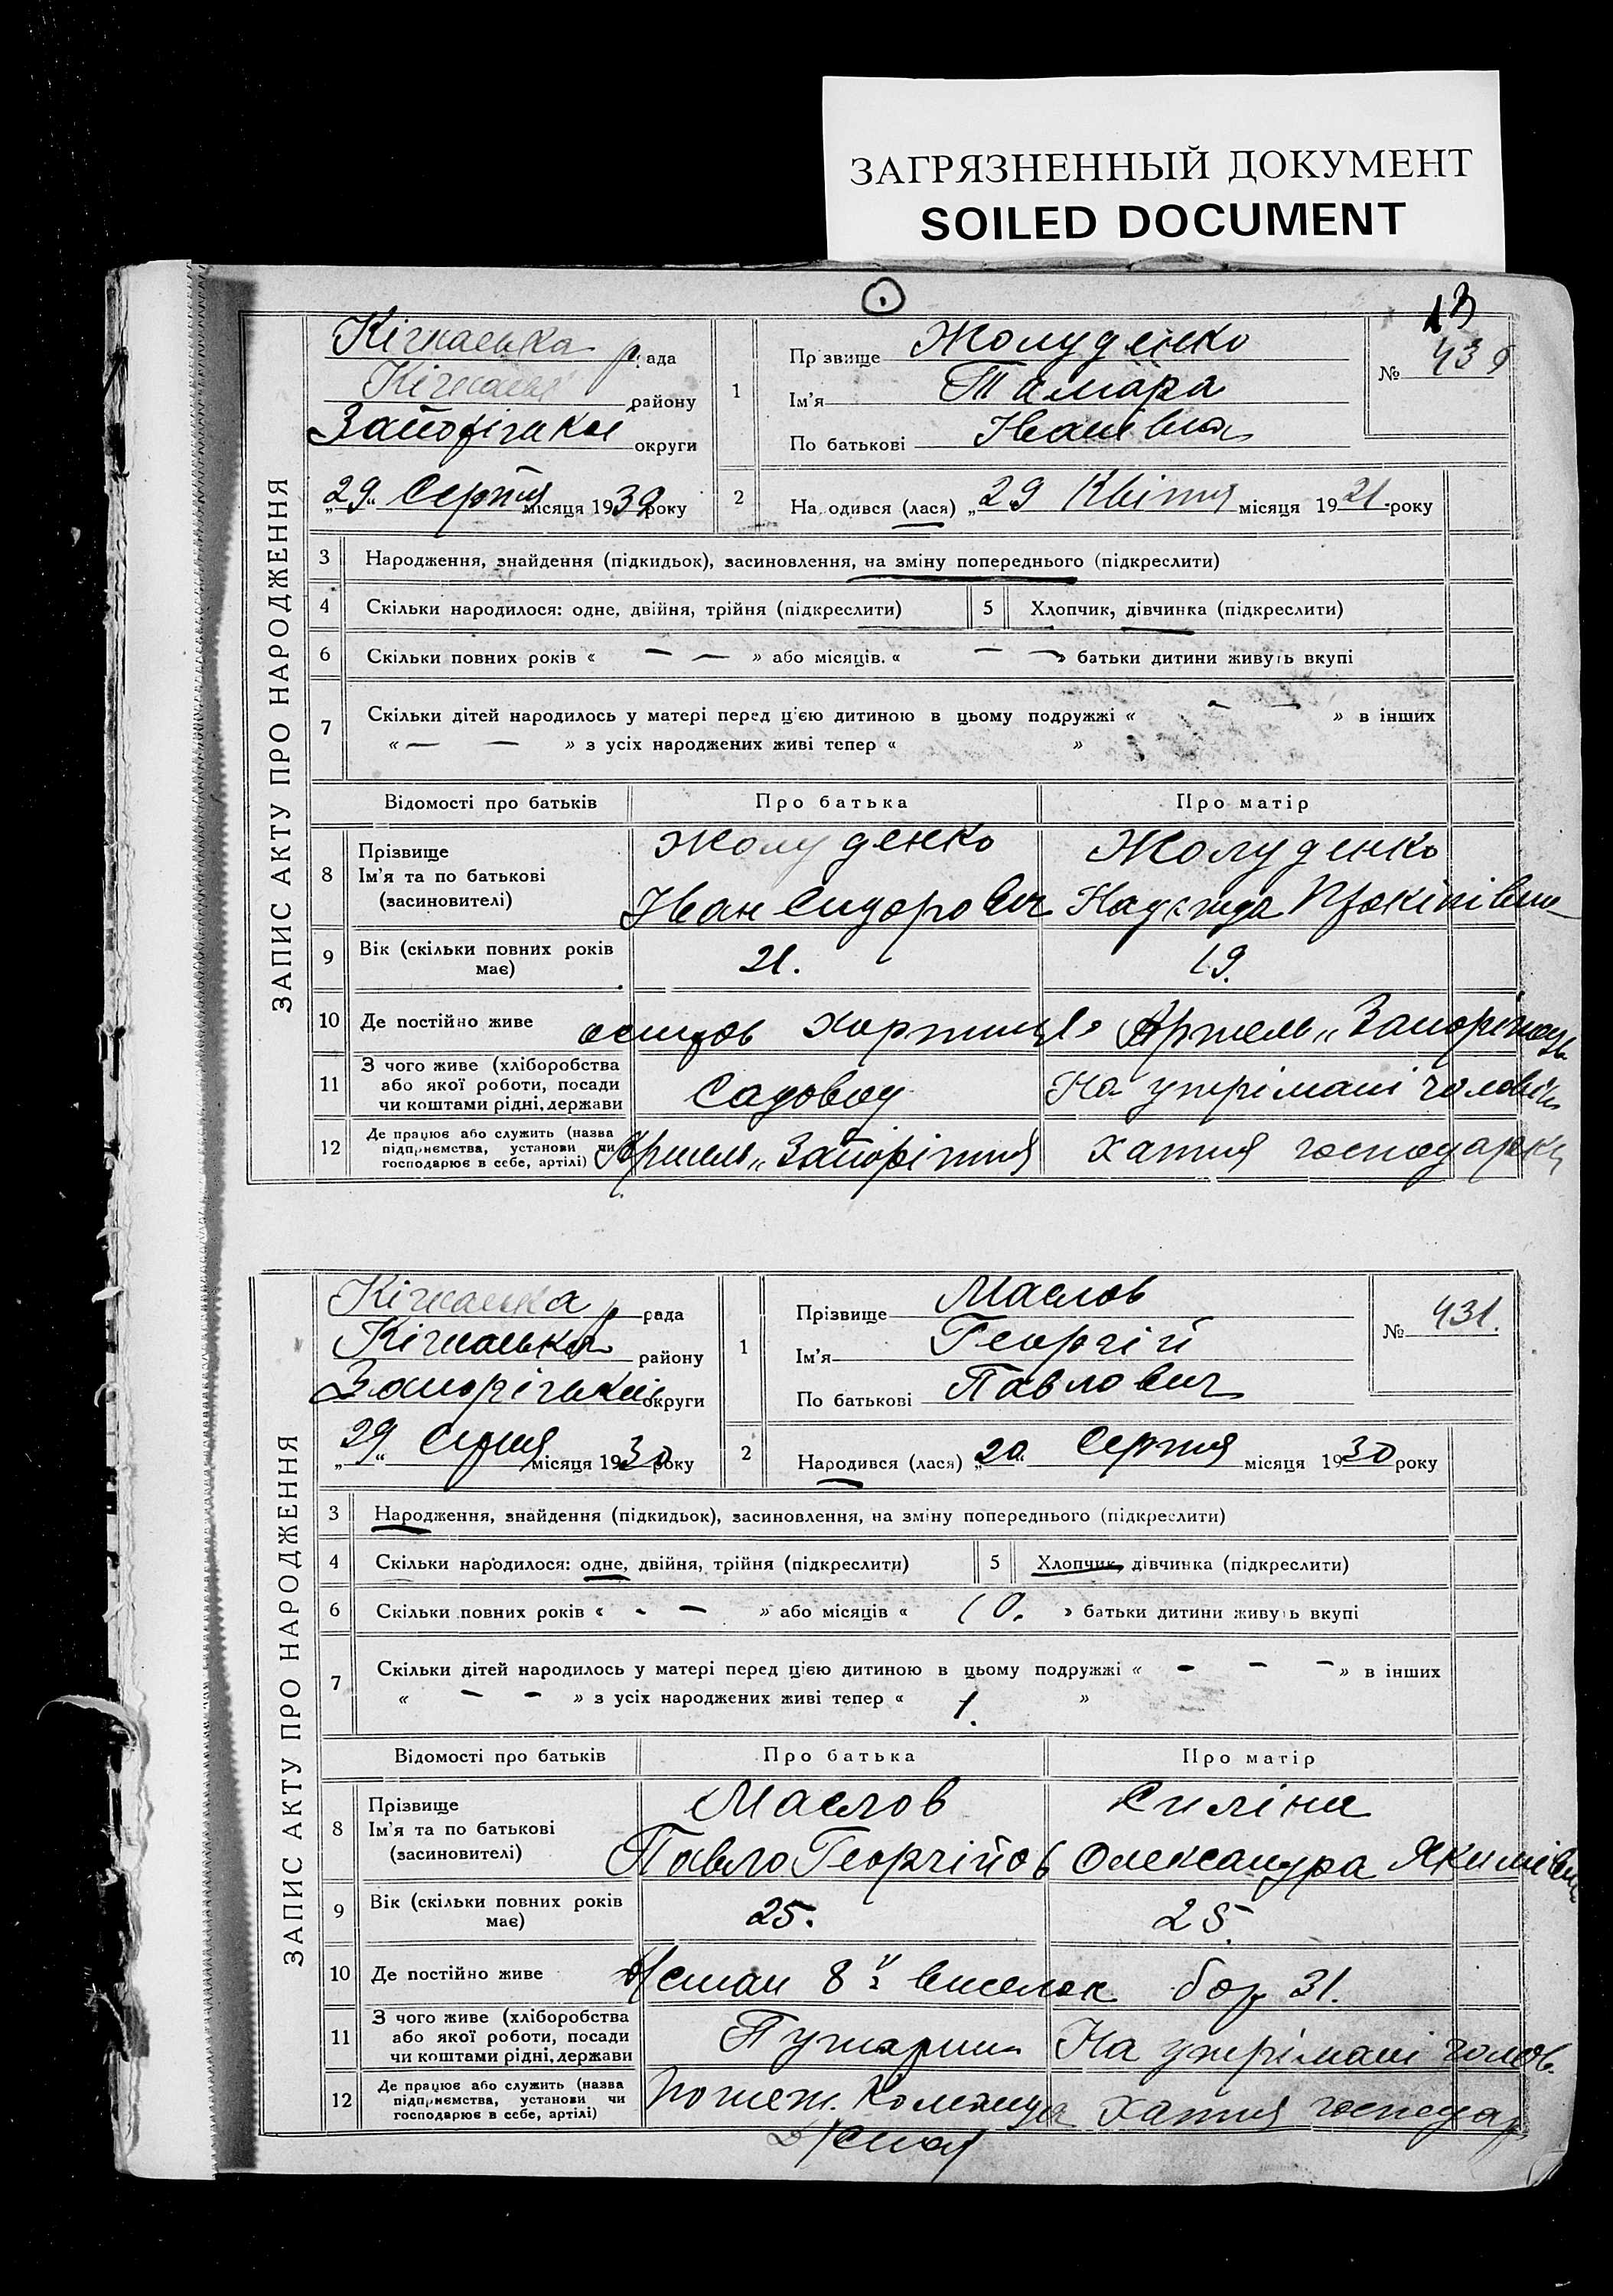 ЗАГРЯЗНЕННЫЙ ДОКУМЕНТ
SOILED DOCUMENT
13
ЗАПИС АКТУ ПРО НАРОДЖЕННЯ
Кічкаська рада
району
Запоріжжя округи
„29“ Серпня місяця 1930 року
1
Прізвище Жолуденко
Ім'я Тамара
По батькові Іванівна
№ 430
2
Народився (лася) „29 Квітня місяця 1921 року
3 Народження, знайдення (підкидьок), засиновлення, на зміну попереднього (підкреслити)
4 Скільки народилося: одне, двійня, трійня (підкреслити)
5 Хлопчик, дівчинка (підкреслити)
6 Скільки повних років « — — » або місяців « — — » батьки дитини живуть вкупі
7 Скільки дітей народилось у матері перед цією дитиною в цьому подружжі « - — » в інших
« — — » з усіх народжених живі тепер « »
Відомості про батьків
Про батька
Про матір
8 Прізвище
Ім'я та по батькові
(засиновителі)
Жолуденко
Іван Сидорович
Жолуденко
Надежда Прокіпівна
9 Вік (скільки повних років має)
21.
19.
10 Де постійно живе
острів Хортиця Артель „Запоріжець
11 З чого живе (хліборобства
або якої роботи, посади
чи коштами рідні, держави
Садовод
На утрімані чоловіка
12 Де працює або служить (назва
підприємства, установи чи
господарює в себе, артілі)
Артель „Запоріжжя
Хатня господарка
ЗАПИС АКТУ ПРО НАРОДЖЕННЯ
Кічкаська рада
Кічкаська району
Запоріжжя округи
„29“ Серпня місяця 1930 року
1
Прізвище Маслов
Ім'я Георгій
По батькові Павлович
№ 431.
2
Народився (лася) „20“ Серпня місяця 1930 року
3 Народження, знайдення (підкидьок), засиновлення, на зміну попереднього (підкреслити)
4 Скільки народилося: одне, двійня, трійня (підкреслити)
5 Хлопчик, дівчинка (підкреслити)
6 Скільки повних років « - — » або місяців « 10. » батьки дитини живуть вкупі
7 Скільки дітей народилось у матері перед цією дитиною в цьому подружжі « - - - » в інших
« — - » з усіх народжених живі тепер « 1. »
Відомості про батьків
Про батька
Про матір
8 Прізвище
Ім'я та по батькові
(засиновителі)
Маслов
Павло Георгійов
Силіна
Олександра Якимівна
9 Вік (скільки повних років має)
25.
25.
10 Де постійно живе
8й виселок бар 31.
11 З чого живе (хліборобства
або якої роботи, посади
чи коштами рідні, держави
На утрімані чолов.
12 Де працює або служить (назва
підприємства, установи чи
господарює в себе, артілі)
Пожеж. Команда
Хатня господар